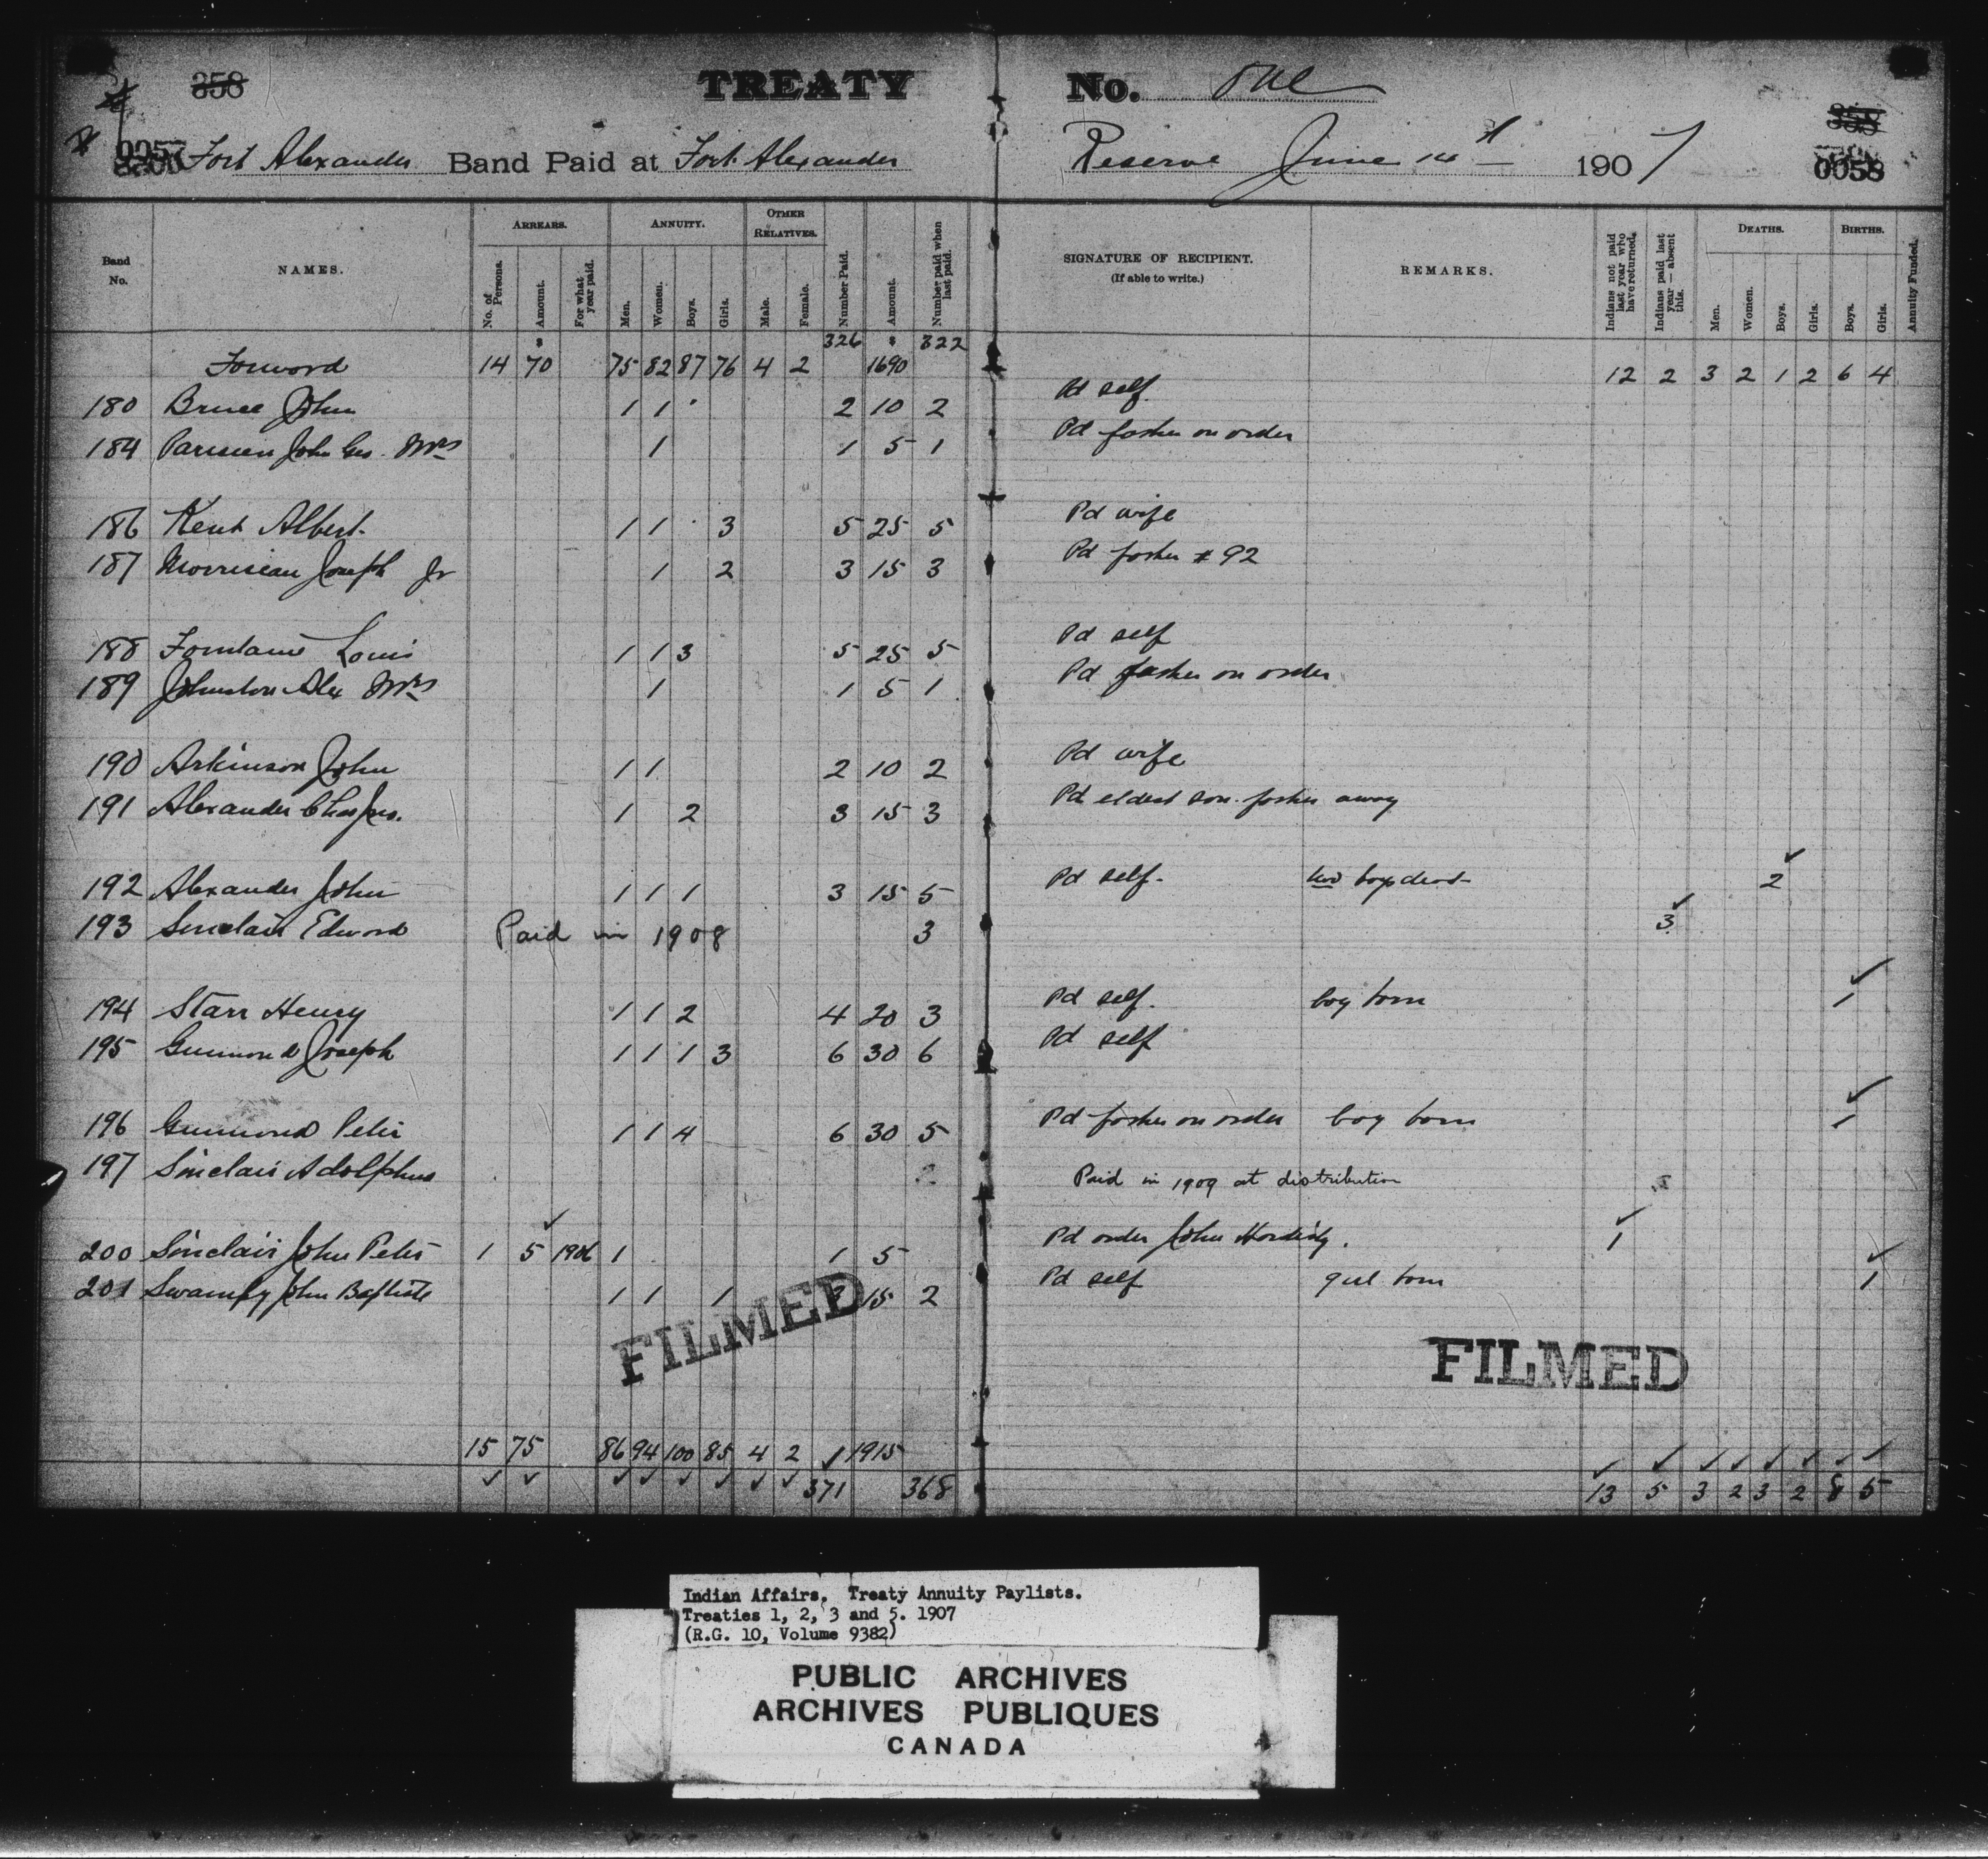 358
TREATY No. One
358
0057 Fort Alexander Band Paid at Fort Alexander Reserve June 14th 1907
0058
Band No. NAMES. ARREARS. No. of Persons. Amount. For what year paid. ANNUITY. Men. Women. Boys. Girls. OTHER RELATIVES. Male. Female. Number Paid. Amount. Number paid when last paid. SIGNATURE OF RECIPIENT. (If able to write.) REMARKS. Indians not paid last year who have returned. Indians paid last year—absent this. DEATHS. Men. Women. Boys. Girls. BIRTHS. Boys. Girls. Annuity Funded.
326 322
Forward 14 70 75 82 87 76 4 2 1690 12 2 3 2 1 2 6 4
180 Bruce John 1 1 2 10 2 Pd self
184 Parisien John Geo. Mrs 1 1 5 1 Pd father on order
186 Kent Albert 1 1 3 5 25 5 Pd wife
187 Morrisseau Joseph Jr 1 2 3 15 3 Pd father # 92
188 Fontaine Louis 1 1 3 5 25 5 Pd self
189 Johnston Alex Mrs 1 1 5 1 Pd father on order
190 Arkinson John 1 1 2 10 2 Pd wife
191 Alexander Chas 1 2 3 15 3 Pd eldest son. father away
192 Alexander John 1 1 1 3 15 5 Pd self. two boys dead 2
193 Sinclair Edward Paid in 1908 3 3
194 Starr Henry 1 1 2 4 20 3 Pd self. boy born 1
195 Guimond Joseph 1 1 1 3 6 30 6 Pd self
196 Guimond Peter 1 1 4 6 30 5 Pd father on order boy born 1
197 Sinclair Adolphus Paid in 1909 at distribution
200 Sinclair John Peter 1 5 1906 1 1 5 Pd order John 1
201 Swampy John Baptiste 1 1 1 3 15 2 Pd self girl born 1
FILMED
FILMED
15 75 86 94 100 85 4 2 1915
371 368 13 5 3 2 3 2 8 5
Indian Affairs. Treaty Annuity Paylists.
Treaties 1, 2, 3 and 5. 1907
(R.G. 10, Volume 9382)
PUBLIC ARCHIVES
ARCHIVES PUBLIQUES
CANADA